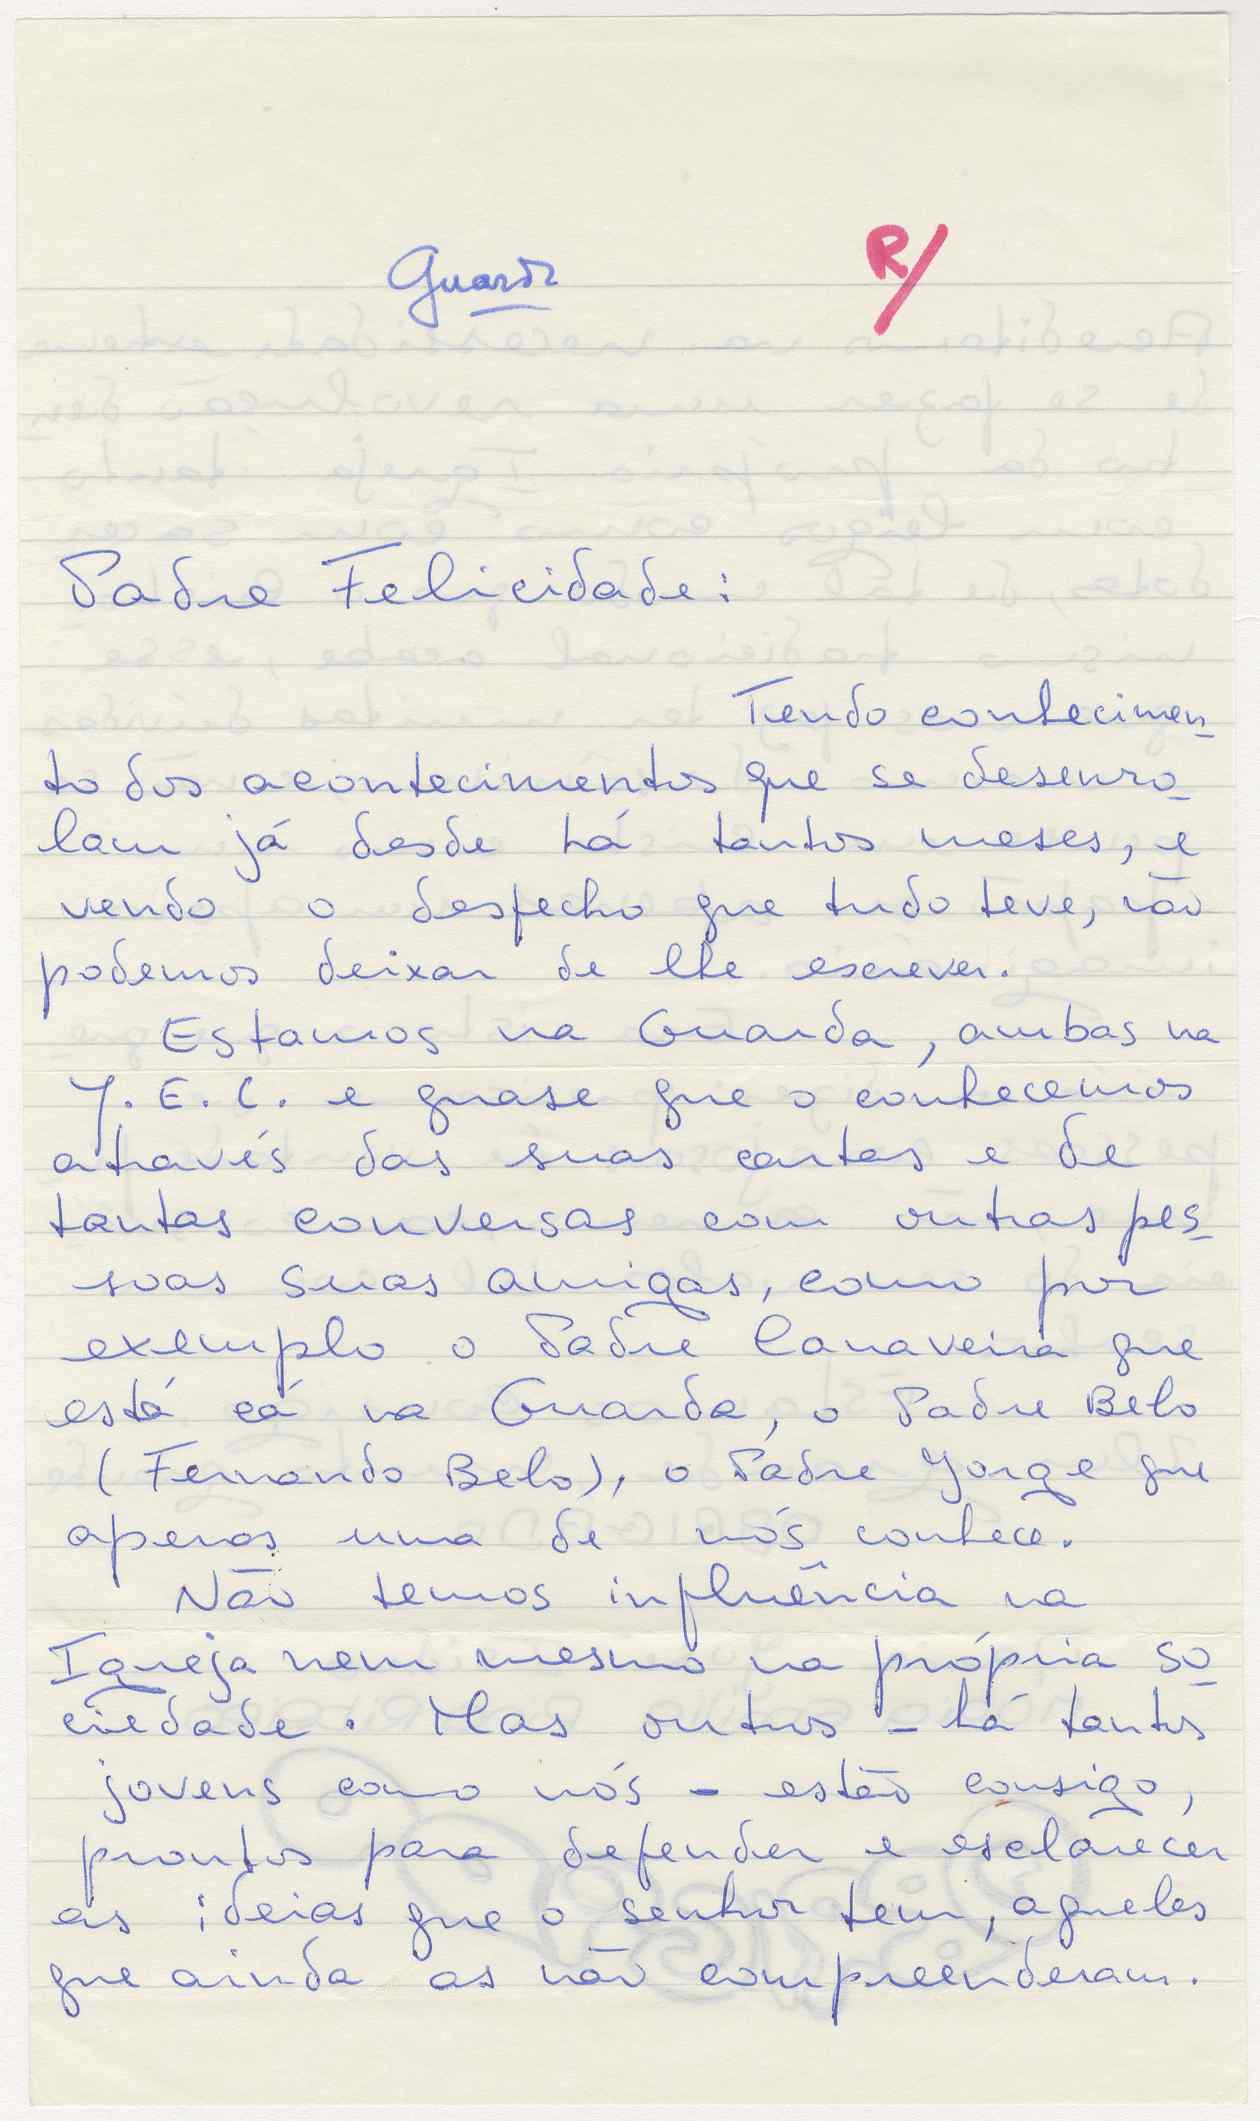 Guarda
R/
Padre Felicidade:
Tendo conhecimen-
to dos acontecimentos que se desenro-
lam já desde há tantos meses, e
vendo o desfecho que tudo teve, não
podemos deixar de lhe escrever.
Estamos na Guarda, ambas na
J.E.C. e quase que o conhecemos
através das suas cartas e de
tantas conversas com outras pes-
soas suas amigas, como por
exemplo o Padre Canaveira que
está cá na Guarda, o Padre Belo
(Fernando Belo), o Padre Jorge que
apenas uma de nós conhece.
Não temos influência na
Igreja nem mesmo na própria so-
ciedade. Mas outros - há tantos
jovens como nós - estão consigo,
prontos para defender e esclarecer
as ideias que o senhor tem, aqueles
que ainda as não compreenderam.